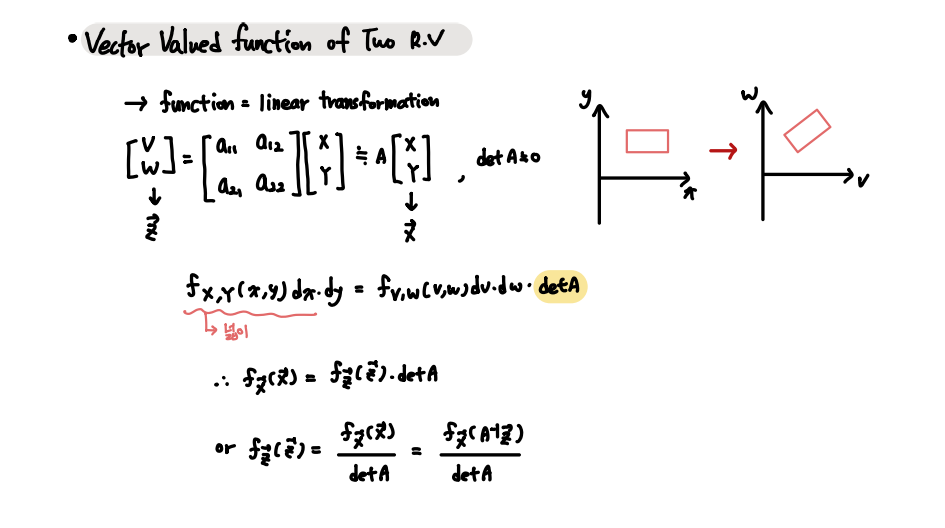 • Vector Valued function of Two R.V
→ function = linear transformation
[V W] = [a₁₁ a₁₂ a₂₁ a₂₂] [X Y] ≒ A [X Y] , det A ≠ 0
↓ z⃗ ↓ x⃗
y x → w v
f_X,Y(x,y) dx·dy = f_V,W(v,w) dv·dw · detA
↳ 넓이
∴ f_x⃗(x⃗) = f_z⃗(z⃗)·detA
or f_z⃗(z⃗) = f_x⃗(x⃗) / detA = f_x⃗(A⁻¹z⃗) / detA